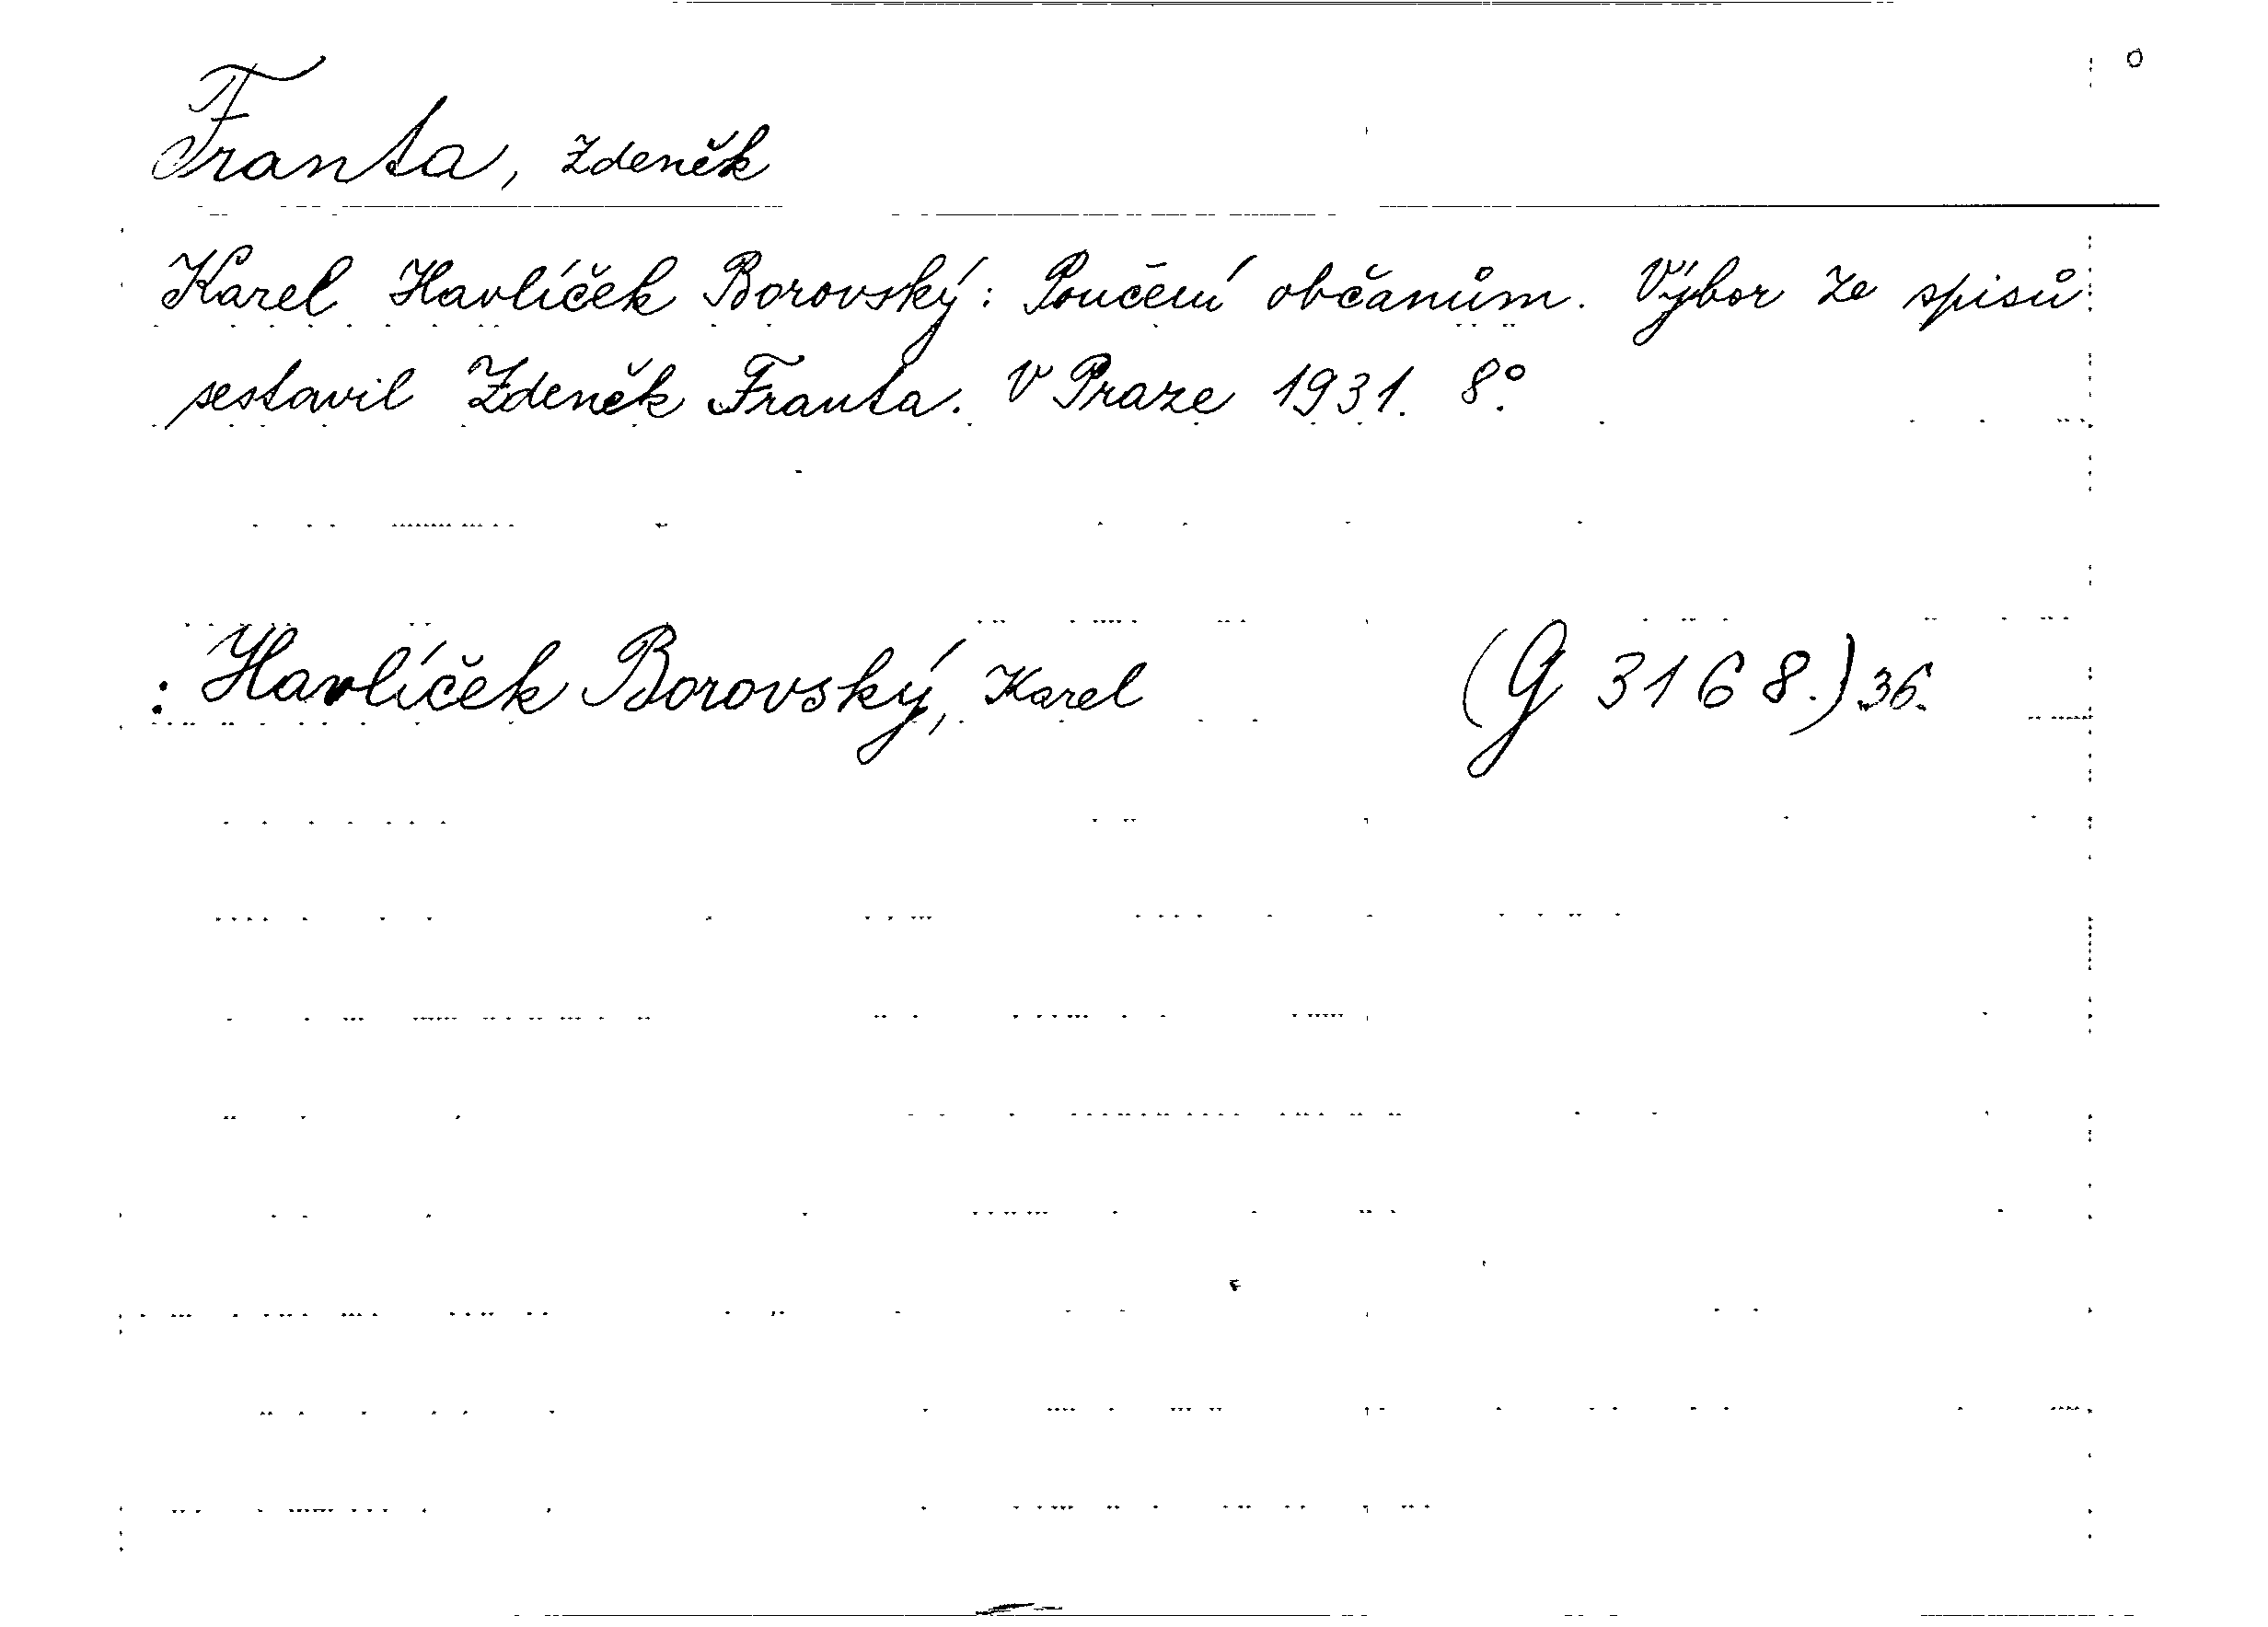 Franta, Zdeněk
Karel Havlíček Borovský: Poučení občanům. Výbor ze spisů
sestavil Zdeněk Franta. V Praze 1931. 8°.
: Havlíček Borovský, Karel (G 3168.) 36.